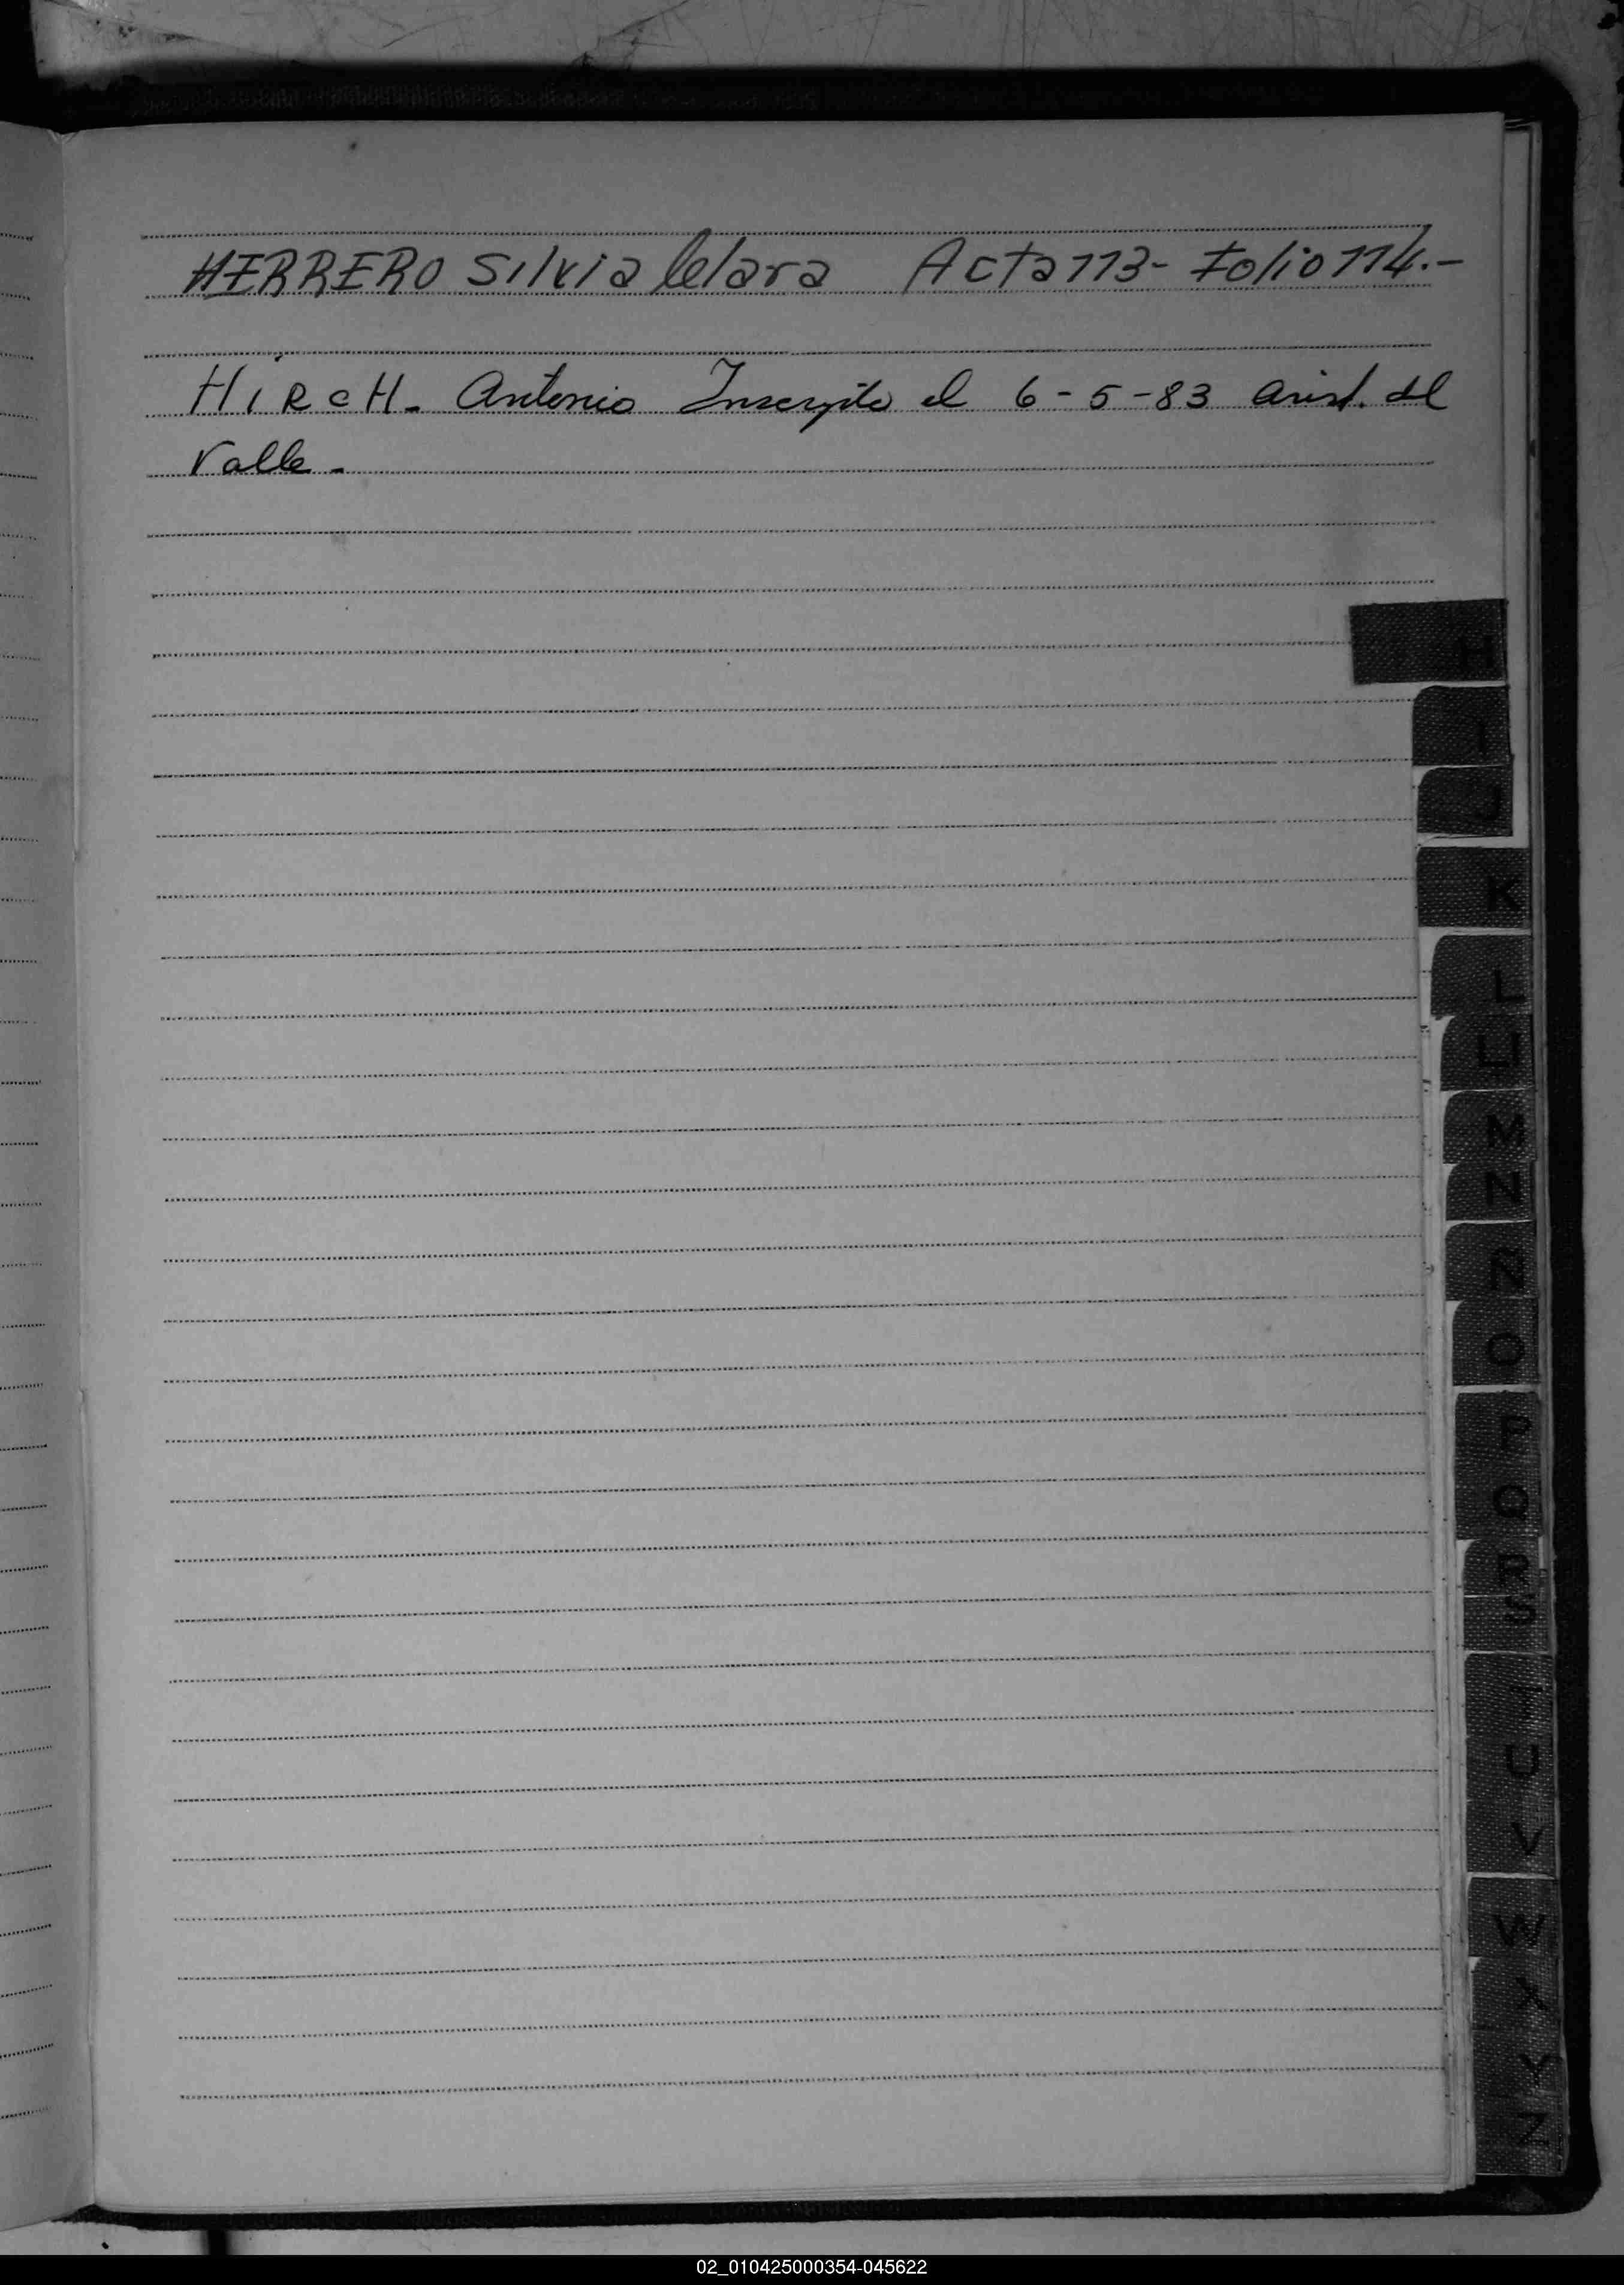 HERRERO Silvia Clara Acta 113- Folio 114.-
HiRcH- Antonio Inscripto el 6-5-83 Arist. del
Valle-
H
I
J
K
L
LL
M
N
Ñ
O
P
Q
R
S
U
V
W
X
Y
Z
02_010425000354-045622